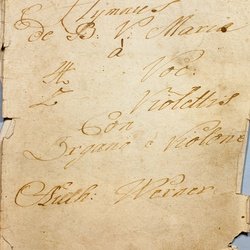 Hymnus
de B. V. Maria
à
4 Voc:
2 Violettis
Con
Organo è Violone
Auth: Werner